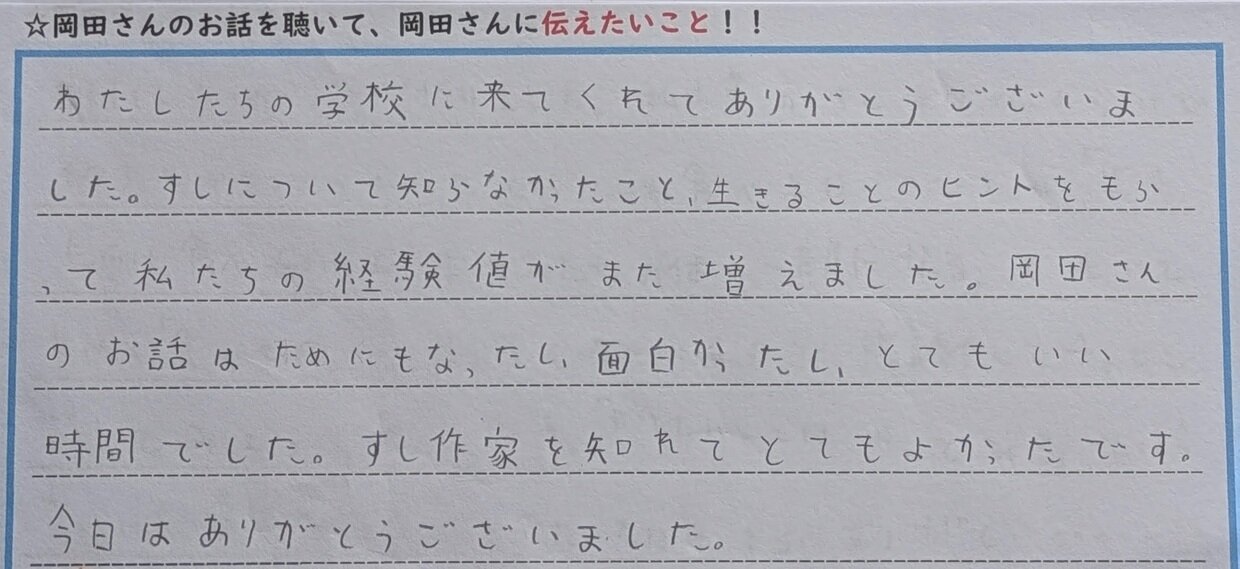 ☆岡田さんのお話を聴いて、岡田さんに伝えたいこと！！
わたしたちの学校に来てくれてありがとうございま
した。すしについて知らなかったこと、生きることのヒントをもら
って私たちの経験値がまた増えました。岡田さん
のお話はためにもなったし、面白かったし、とてもいい
時間でした。すし作家を知れてとてもよかったです。
今日はありがとうございました。